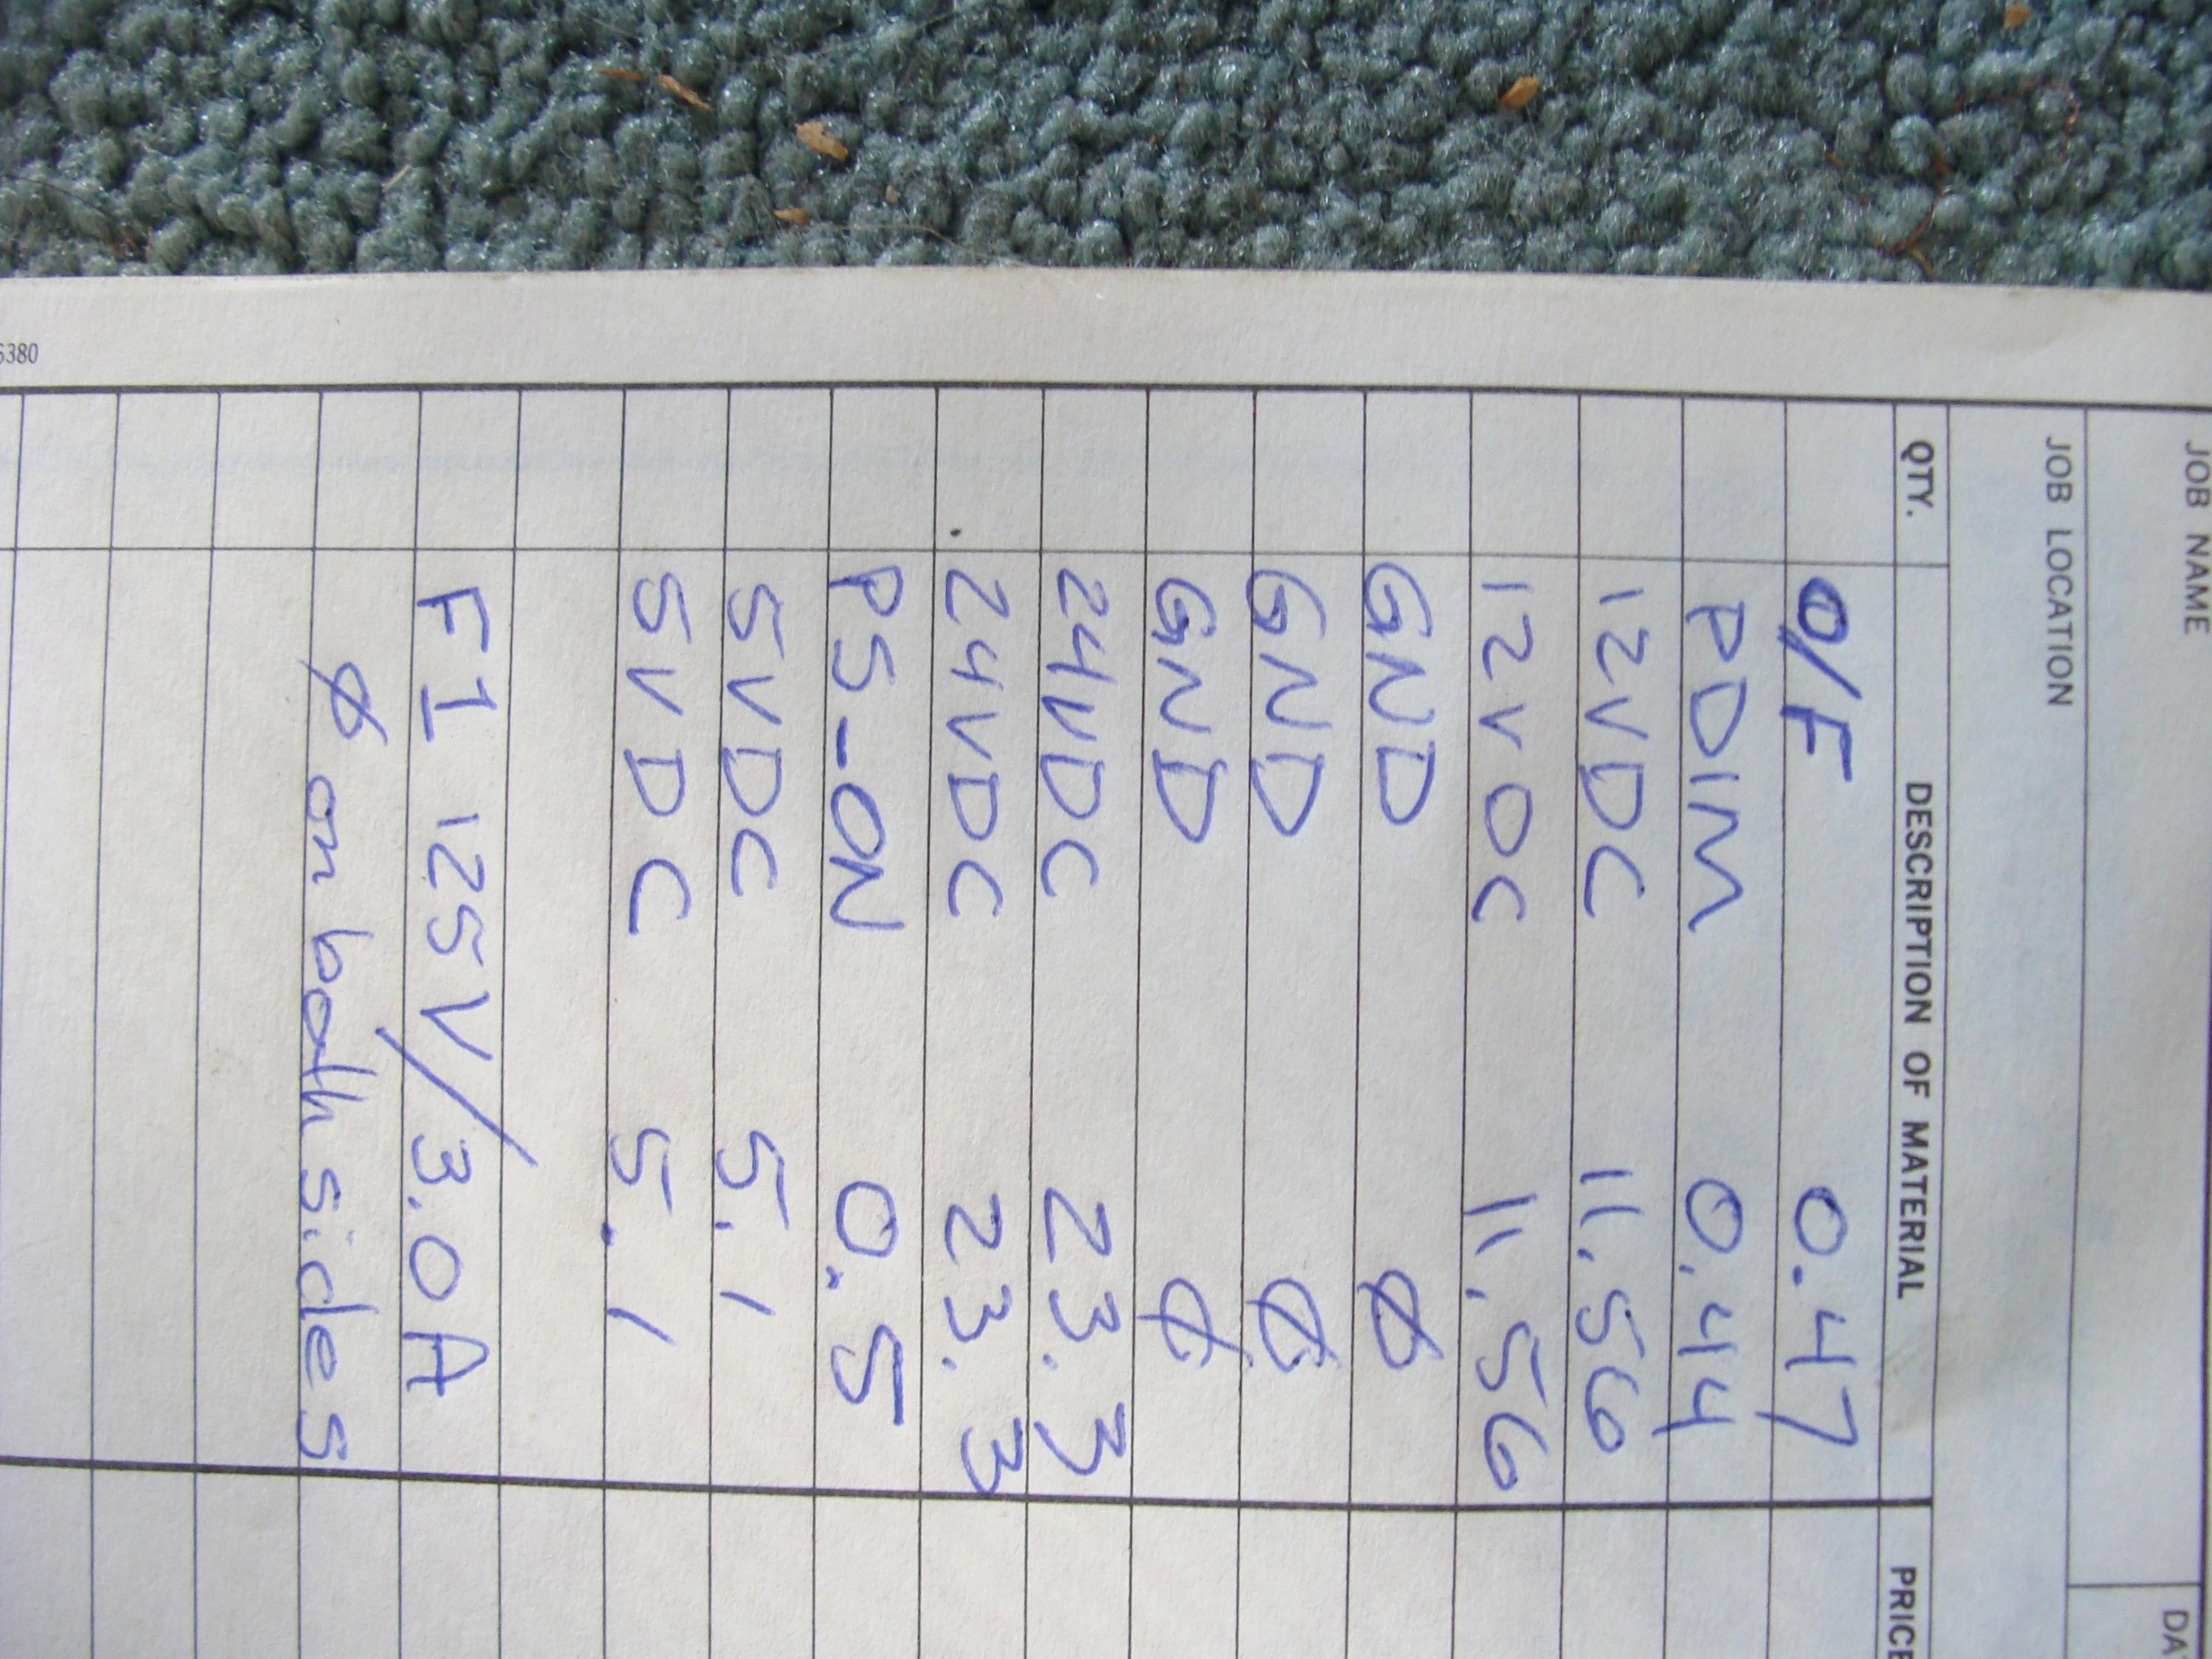 JOB NAME
DA
JOB LOCATION
QTY. DESCRIPTION OF MATERIAL PRICE
O/F 0.47
PDIM 0.44
12VDC 11.56
12VDC 11.56
GND Ø
GND Ø
GND Ø
24VDC 23.3
24VDC 23.3
PS-ON 0.5
5VDC 5.1
5VDC 5.1
F1 125V/3.0A
Ø on both sides
6380